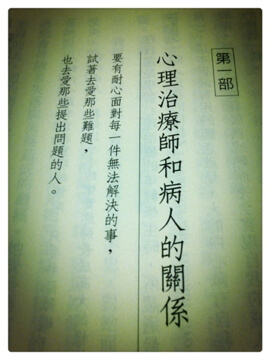 第一部
心理治療師和病人的關係
要有耐心面對每一件無法解決的事，
試著去愛那些難題，
也去愛那些提出問題的人。